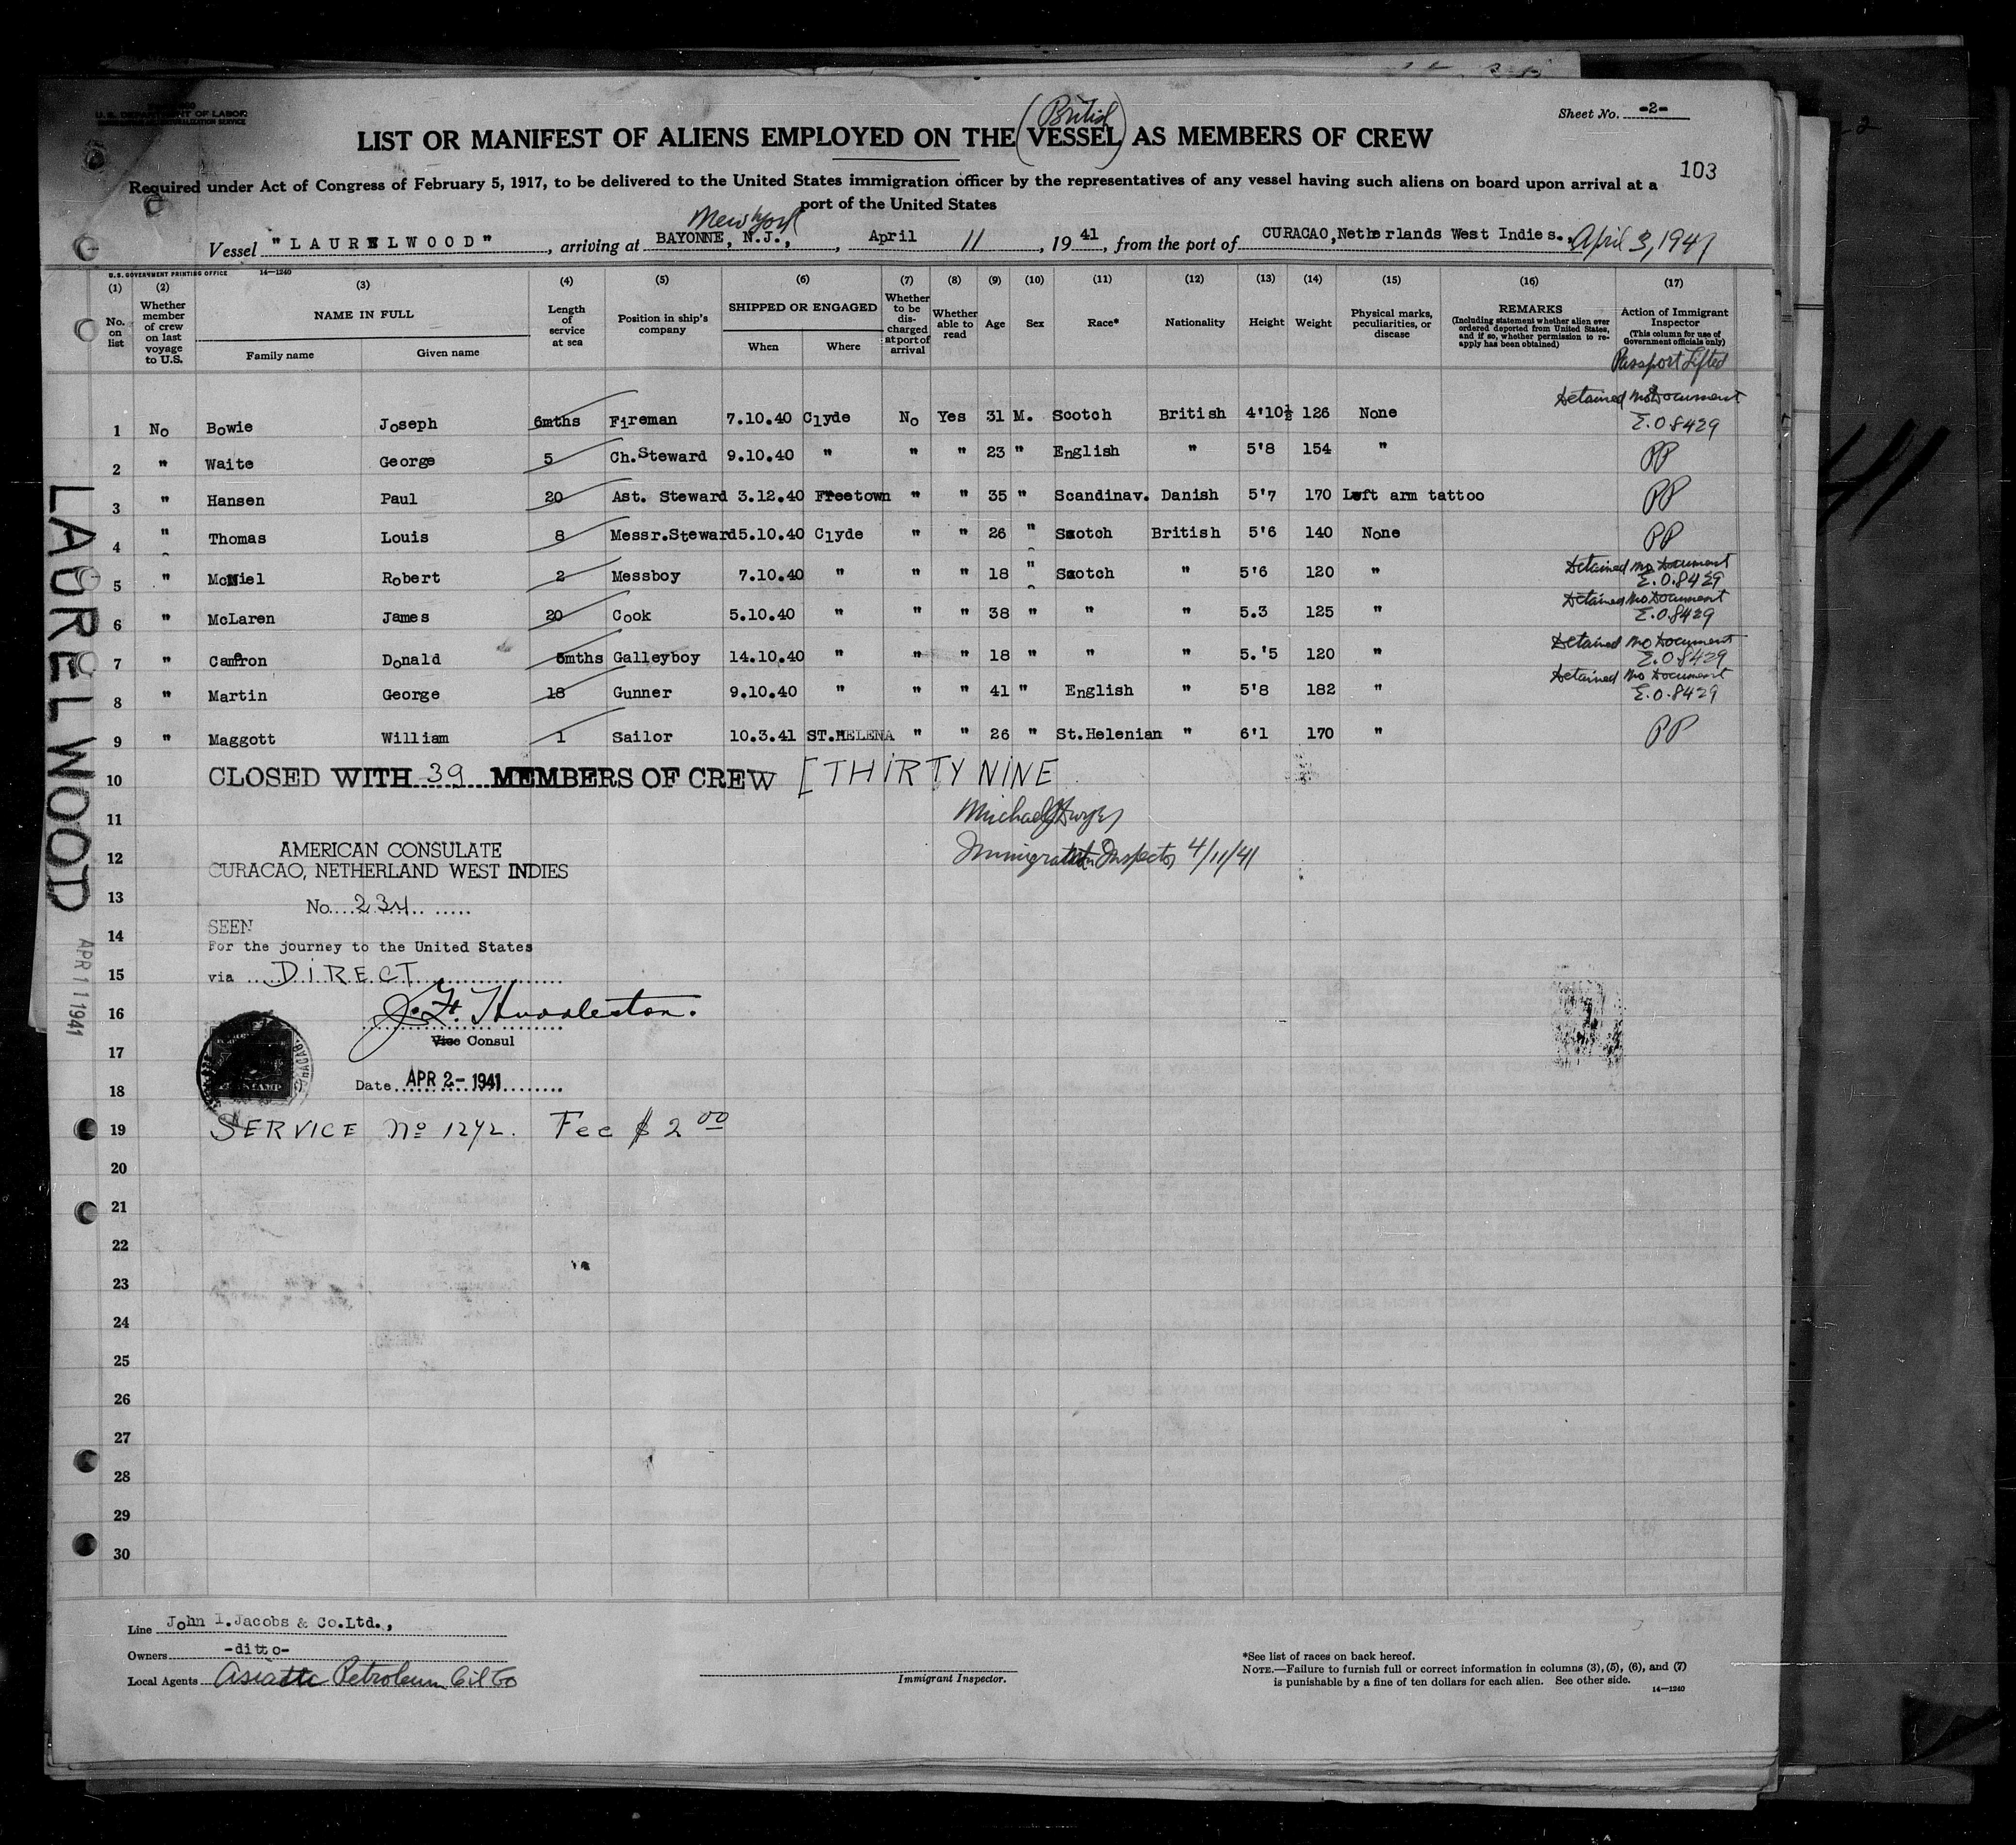 U.S. DEPARTMENT OF LABOR
IMMIGRATION AND NATURALIZATION SERVICE
Sheet No. -2-
(British)
LIST OR MANIFEST OF ALIENS EMPLOYED ON THE VESSEL AS MEMBERS OF CREW
103
Required under Act of Congress of February 5, 1917, to be delivered to the United States immigration officer by the representatives of any vessel having such aliens on board upon arrival at a
port of the United States
New York
Vessel "LAURELWOOD", arriving at BAYONNE, N.J., April 11, 1941, from the port of CURACAO, Netherlands West Indies. April 3, 1941
U.S. GOVERNMENT PRINTING OFFICE 14—1240
(1) No. on list
(2) Whether member of crew on last voyage to U.S.
(3) NAME IN FULL Family name Given name
(4) Length of service at sea
(5) Position in ship's company
(6) SHIPPED OR ENGAGED When Where
(7) Whether to be discharged at port of arrival
(8) Whether able to read
(9) Age
(10) Sex
(11) Race*
(12) Nationality
(13) Height
(14) Weight
(15) Physical marks, peculiarities, or disease
(16) REMARKS (Including statement whether alien ever ordered deported from United States, and if so, whether permission to re-apply has been obtained)
(17) Action of Immigrant Inspector (This column for use of Government officials only)
Passport Lifted
1 No Bowie Joseph 6mths Fireman 7.10.40 Clyde No Yes 31 M. Scotch British 4'10½ 126 None Detained No Document E.O.8429
2 " Waite George 5 Ch.Steward 9.10.40 " " " 23 " English " 5'8 154 " PP
3 " Hansen Paul 20 Ast. Steward 3.12.40 Freetown " " 35 " Scandinav. Danish 5'7 170 Left arm tattoo PP
4 " Thomas Louis 8 Messr.Steward 5.10.40 Clyde " " 26 " Scotch British 5'6 140 None PP
5 " McNiel Robert 2 Messboy 7.10.40 " " " 18 " Scotch " 5'6 120 " Detained No Document E.O.8429
6 " McLaren James 20 Cook 5.10.40 " " " 38 " " " 5.3 125 " Detained No Document E.O.8429
7 " Camron Donald 6mths Galleyboy 14.10.40 " " " 18 " " " 5.'5 120 " Detained No Document E.O.8429
8 " Martin George 18 Gunner 9.10.40 " " " 41 " English " 5'8 182 " Detained No Document E.O.8429
9 " Maggott William 1 Sailor 10.3.41 ST.HELENA " " 26 " St.Helenian " 6'1 170 " PP
10 CLOSED WITH 39 MEMBERS OF CREW [THIRTY NINE
11
12
Immigration Inspector 4/11/41
AMERICAN CONSULATE
CURACAO, NETHERLAND WEST INDIES
13
No. 234
14
SEEN
For the journey to the United States
15 via DIRECT
16
17 Vice Consul
18 Date APR 2- 1941
19 SERVICE No 1242. Fee $ 2 00
20
21
22
23
24
25
26
27
28
29
30
LAURELWOOD
APR 11 1941
Line John I. Jacobs & Co.Ltd.,
Owners -ditto-
Local Agents Asiatic Petroleum Oil Co
Immigrant Inspector.
*See list of races on back hereof.
NOTE.—Failure to furnish full or correct information in columns (3), (5), (6), and (7)
is punishable by a fine of ten dollars for each alien. See other side.
14—1240